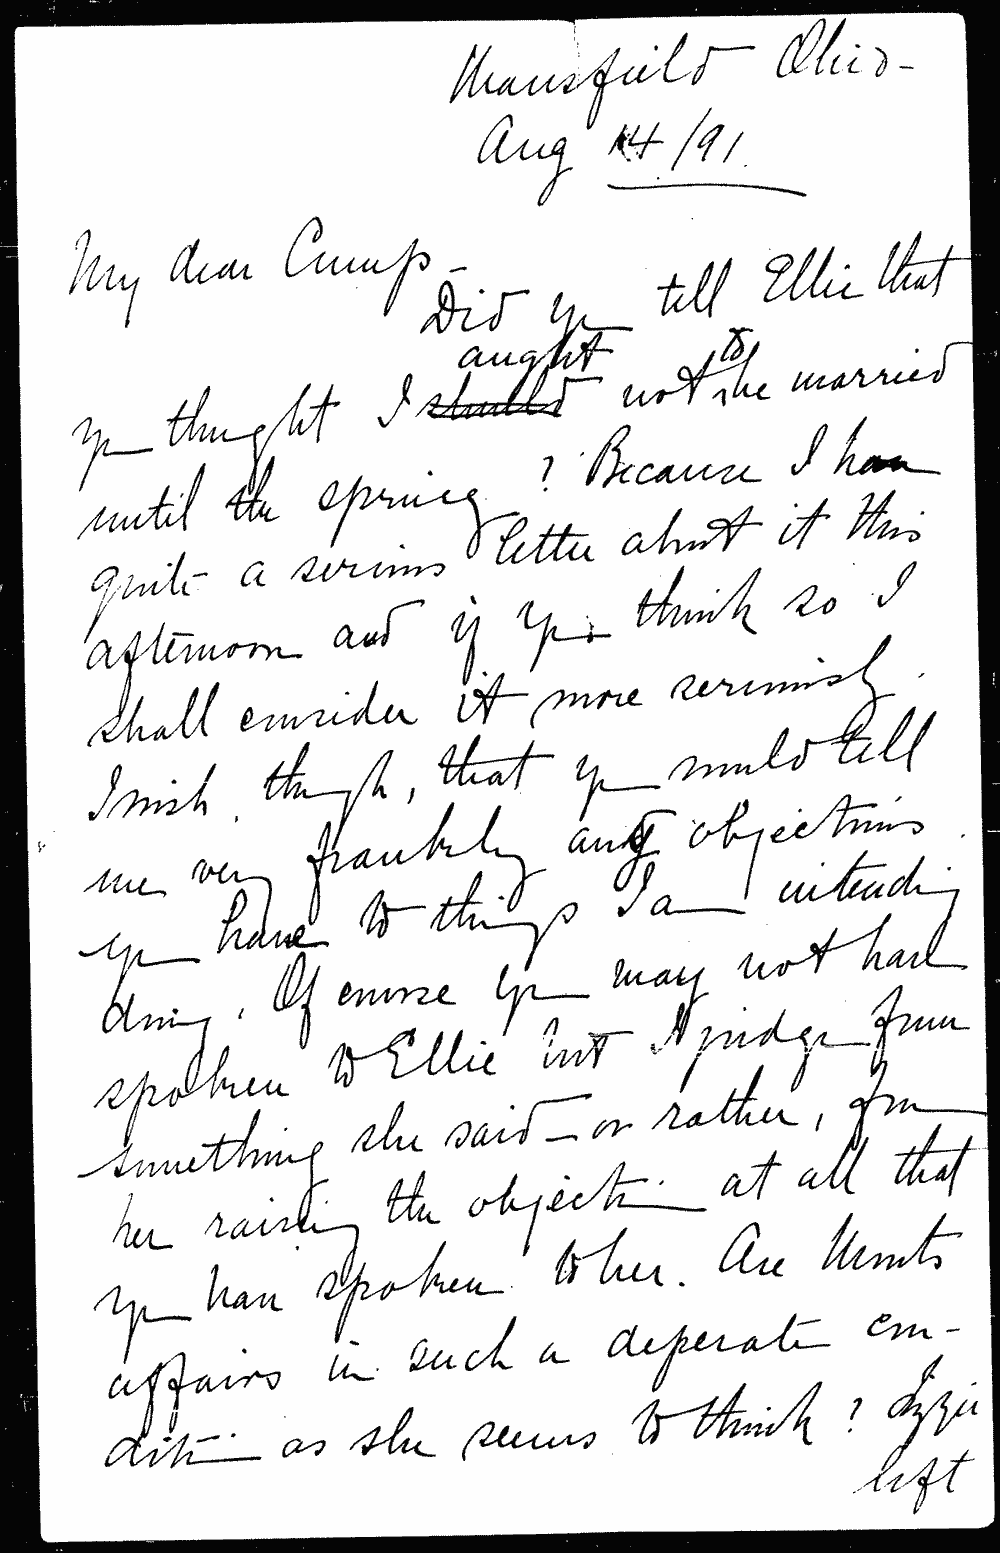 Mansfield Ohio-
Aug 14/91.
My dear Cump-
Did you tell Ellie that
aught to
you thought I should not be married
until the spring? Because I have
quite a serious letter about it this
afternoon and if you think so I
shall consider it more seriously.
I wish, though, that you would tell
me very frankly any objections
you have to things I am intending
doing. Of course you may not have
spoken to Ellie but I judge from
something she said - or rather, from
her raising the objection at all that
you have spoken to her. Are Monts
affairs in such a deperate con-
dition as she seems to think? Lizzie
left